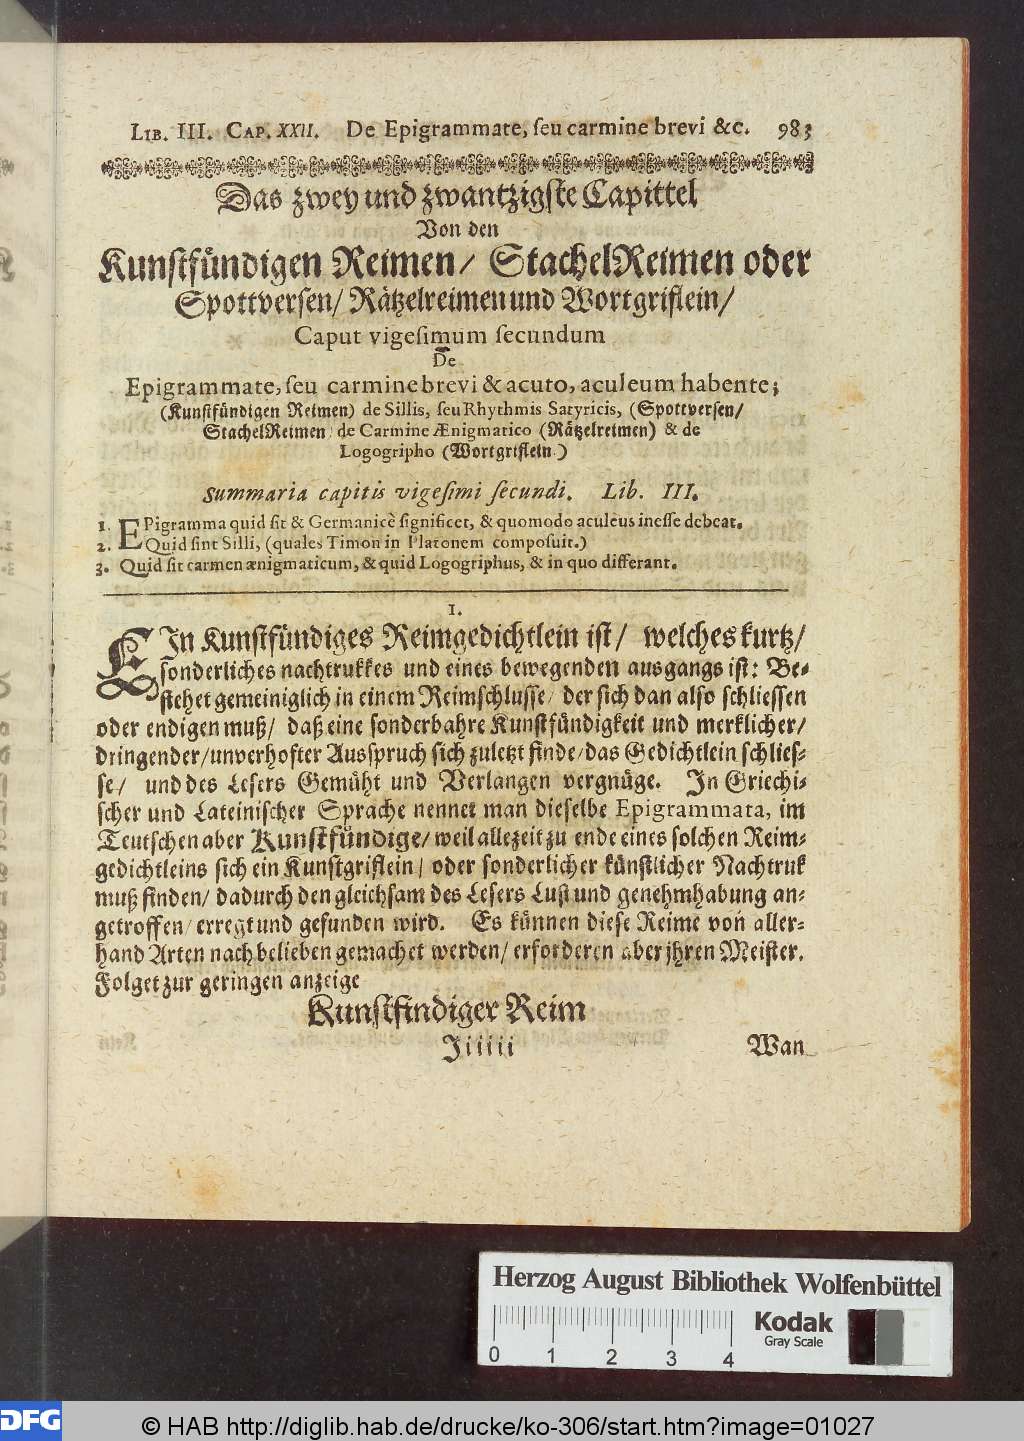 LIB. III. CAP. XXII. De Epigrammate, ſeu carmine brevi &c. 983
Das zwey und zwantzigſte Capittel
Von den
Kunſtfündigen Reimen/ StachelReimen oder
Spottverſen/ Rätzelreimen und Wortgriflein/
Caput vigeſimum ſecundum
De
Epigrammate, ſeu carmine brevi & acuto, aculeum habente;
(Kunſtfündigen Reimen) de Sillis, ſeu Rhythmis Satyricis, (Spottverſen/
StachelReimen/ de Carmine Ænigmatico (Rätzelreimen) & de
Logogripho (Wortgriflein.)
Summaria capitis vigeſimi ſecundi. Lib. III.
1. EPigramma quid ſit & Germanicè ſignificet, & quomodo aculeus ineſſe debeat.
2. Quid ſint Silli, (quales Timon in Platonem compoſuit.)
3. Quid ſit carmen ænigmaticum, & quid Logogriphus, & in quo differant.
1.
EIn Kunſtfündiges Reimgedichtlein iſt/ welches kurtz/
ſonderliches nachtrukkes und eines bewegenden ausgangs iſt: Be-
ſtehet gemeiniglich in einem Reimſchluſſe/ der ſich dan alſo ſchlieſſen
oder endigen muß/ daß eine ſonderbahre Kunſtfündigkeit und merklicher/
dringender/ unverhofter Ausſpruch ſich zuletzt finde/ das Gedichtlein ſchlieſ-
ſe/ und des Leſers Gemüht und Verlangen vergnüge. In Griechi-
ſcher und Lateiniſcher Sprache nennet man dieſelbe Epigrammata, im
Teutſchen aber Kunſtfündige/ weil allezeit zu ende eines ſolchen Reim-
gedichtleins ſich ein Kunſtgriflein/ oder ſonderlicher künſtlicher Nachtruk
muß finden/ dadurch den gleichſam des Leſers Luſt und genehmhabung an-
getroffen/ erregt und gefunden wird. Es künnen dieſe Reime von aller-
hand Arten nach belieben gemachet werden/ erforderen aber jhren Meiſter.
Folget zur geringen anzeige
Kunſtfindiger Reim
Jiiiii Wan
Herzog August Bibliothek Wolfenbüttel
Kodak
Gray Scale
0 1 2 3 4
DFG © HAB http://diglib.hab.de/drucke/ko-306/start.htm?image=01027